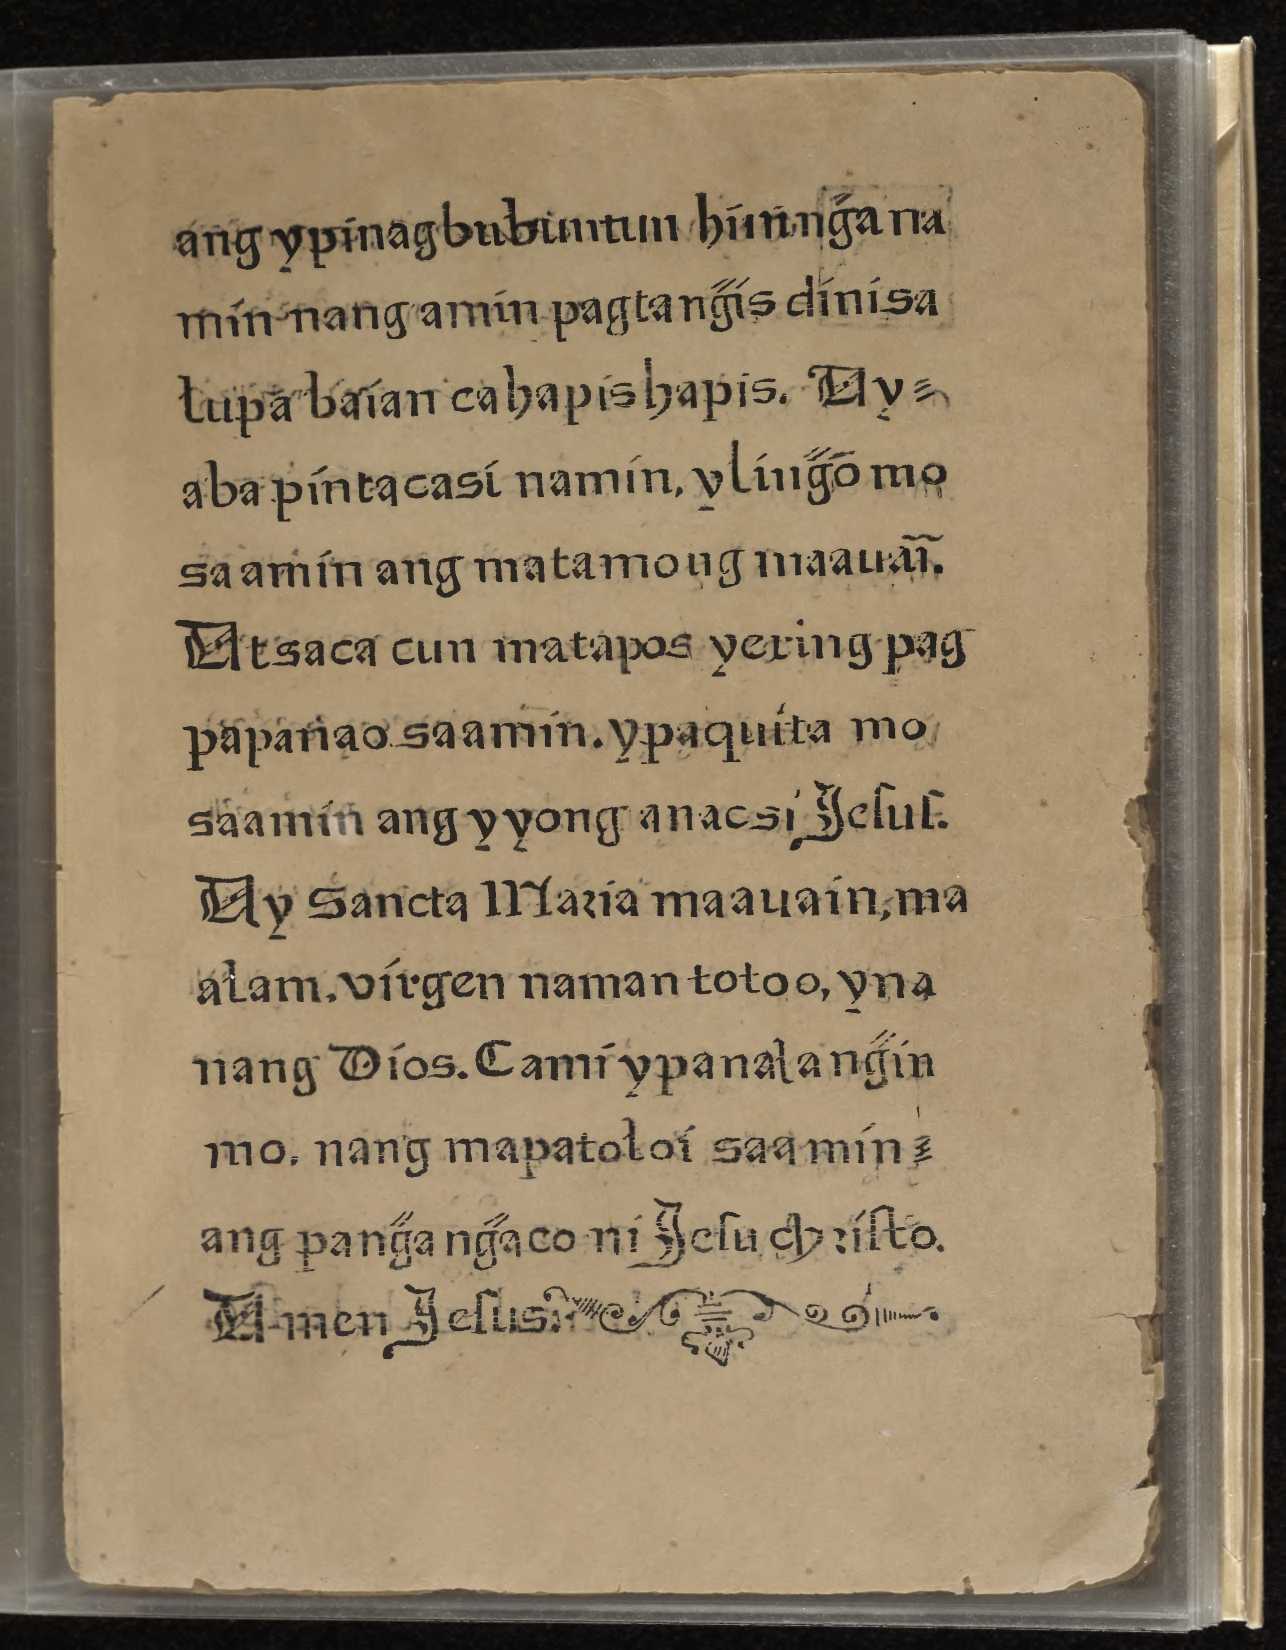 ang ypinagbubuntun hiningña na
min nang amin pagtangñis dini sa
lupa baian cahapishapis. Ay=
aba pintacasi namin, ylingõ mo
saamin ang matamoug maauaĩ.
At saca cun matapos yering pag
papanao saamin. ypaquita mo
saamin ang yyong anac si Jeſuſ.
Ay Sancta Maria maauain, ma
alam. virgen naman totoo, yna
nang Dios. Cami ypanalangñin
mo. nang mapatoloi saamin=
ang pangñangñaco ni Jeſu chriſto.
Amen Jeſus.